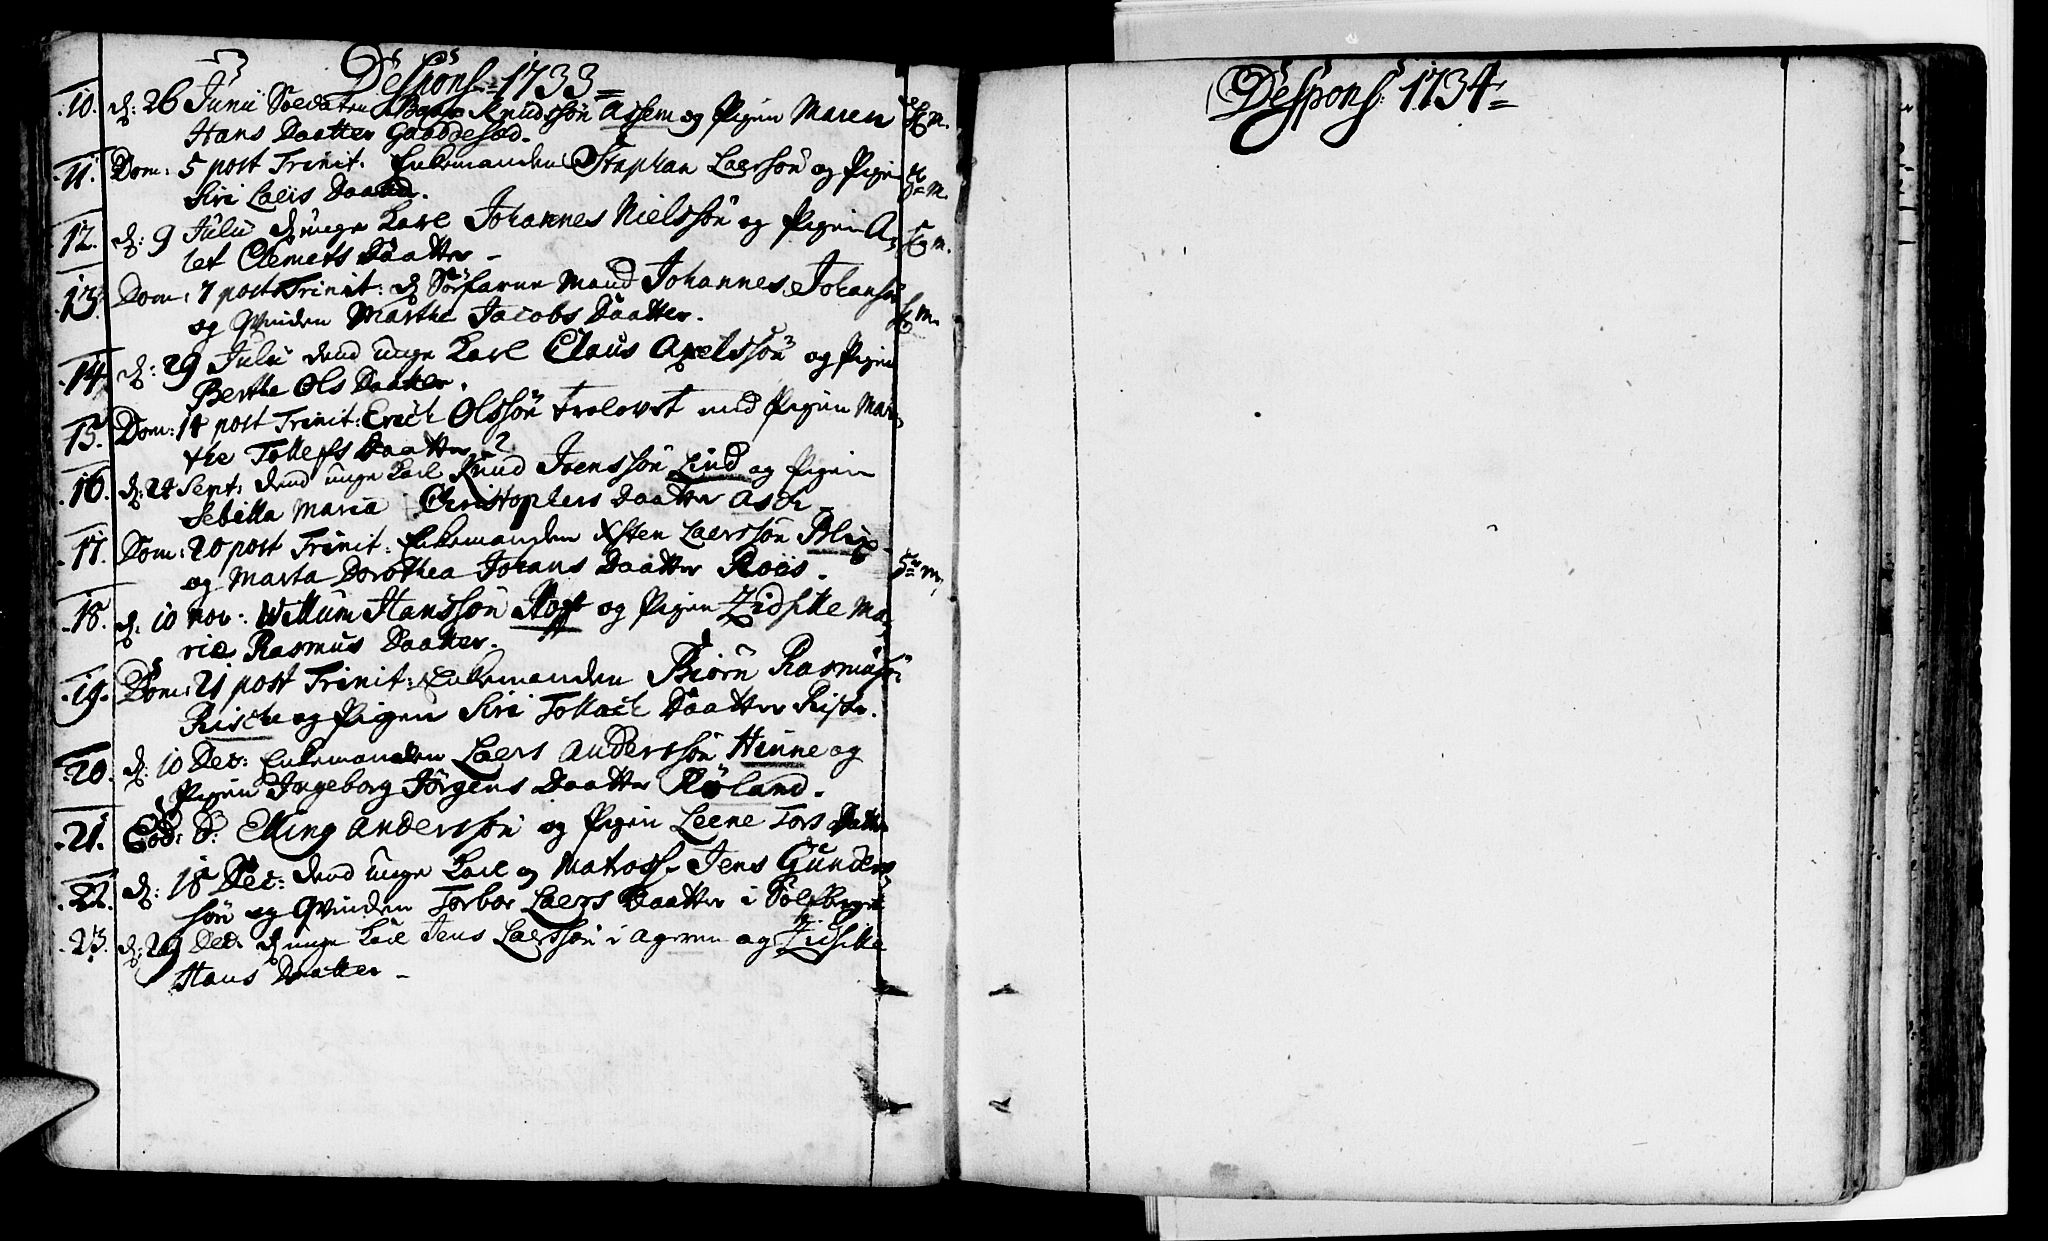 Despons: 1733=
10. d: 26 Junii Soldaten Knudssön Assem og Pigen Maren
Hans Daatter
11. Dom: 5 post Trinit: Enkemanden Stephan Laerssön og Pigen
Siri Laers Daatter.
12. d: 9 Julii d unge Karl Johannes Nielssön og Pigen A-
let Clemets Daatter -
13. Dom: 7 post Trinit: d Söefarne Mand Johannes Johanssön
og Qvinden Marthe Jacobs Daatter.
14. d: 29 Julii dend unge Karl Claus Axelssön og Pigen
Berthe Ols Daatter.
15. Dom: 14 post Trinit: Erich Olssön trolovet med Pigen Mar-
the Tollefs Daatter
16. d: 24 Sept: dend unge Karl Knud Joenssön Lind og Pigen
Sebilla Maria Christophers Daatter Asch
17. Dom: 20 post Trinit: Enkemanden Xsten Laerssön Blix
og Marta Dorothea Johans Daatter Roiis.
18. d: 10 Nov: Willum Hanssön og Pigen Zidsille Ma-
rie Rasmus Daatter.
19. Dom: 21 post Trinit: Enkemanden Biörn Rasmussön
Rische og Pigen Siri Tollach Daatter Riske.
20. d: 10 Dec: Enkemanden Laers Anderssön Hinne og
Pigen Ingeborg Jörgens Daatter Röland.
21. Eod: D: Elling Anderssön og Pigen Leene Tors Datter
22. d: 18 Dec: dend unge Karl og Matross Jens Gunders-
sön og Qvinden Torbor Laers Daatter i
23. d: 29 Dec: d unge Karl Jens Laerssön i Ageren og Zidsille
Hans Daatter -
Despons: 1734=